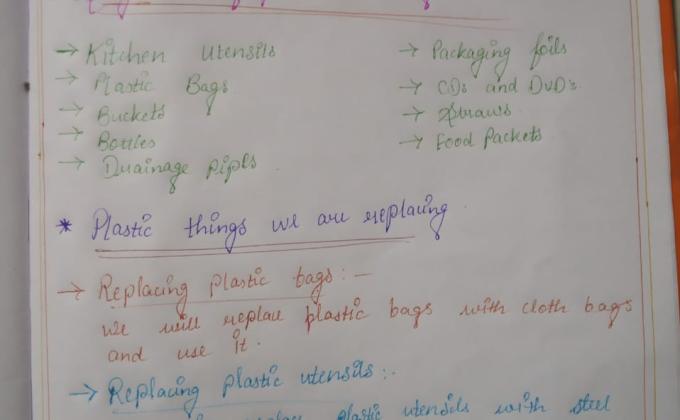 → Kitchen utensils
→ Plastic Bags
→ Buckets
→ Bottles
→ Drainage pipes
→ Packaging foils
→ CDs and DVD's
→ Straws
→ Food Packets
* Plastic things we are replacing
→ Replacing plastic bags :-
we will replace plastic bags with cloth bags
and use it.
→ Replacing plastic utensils :-
replace plastic utensils with steel